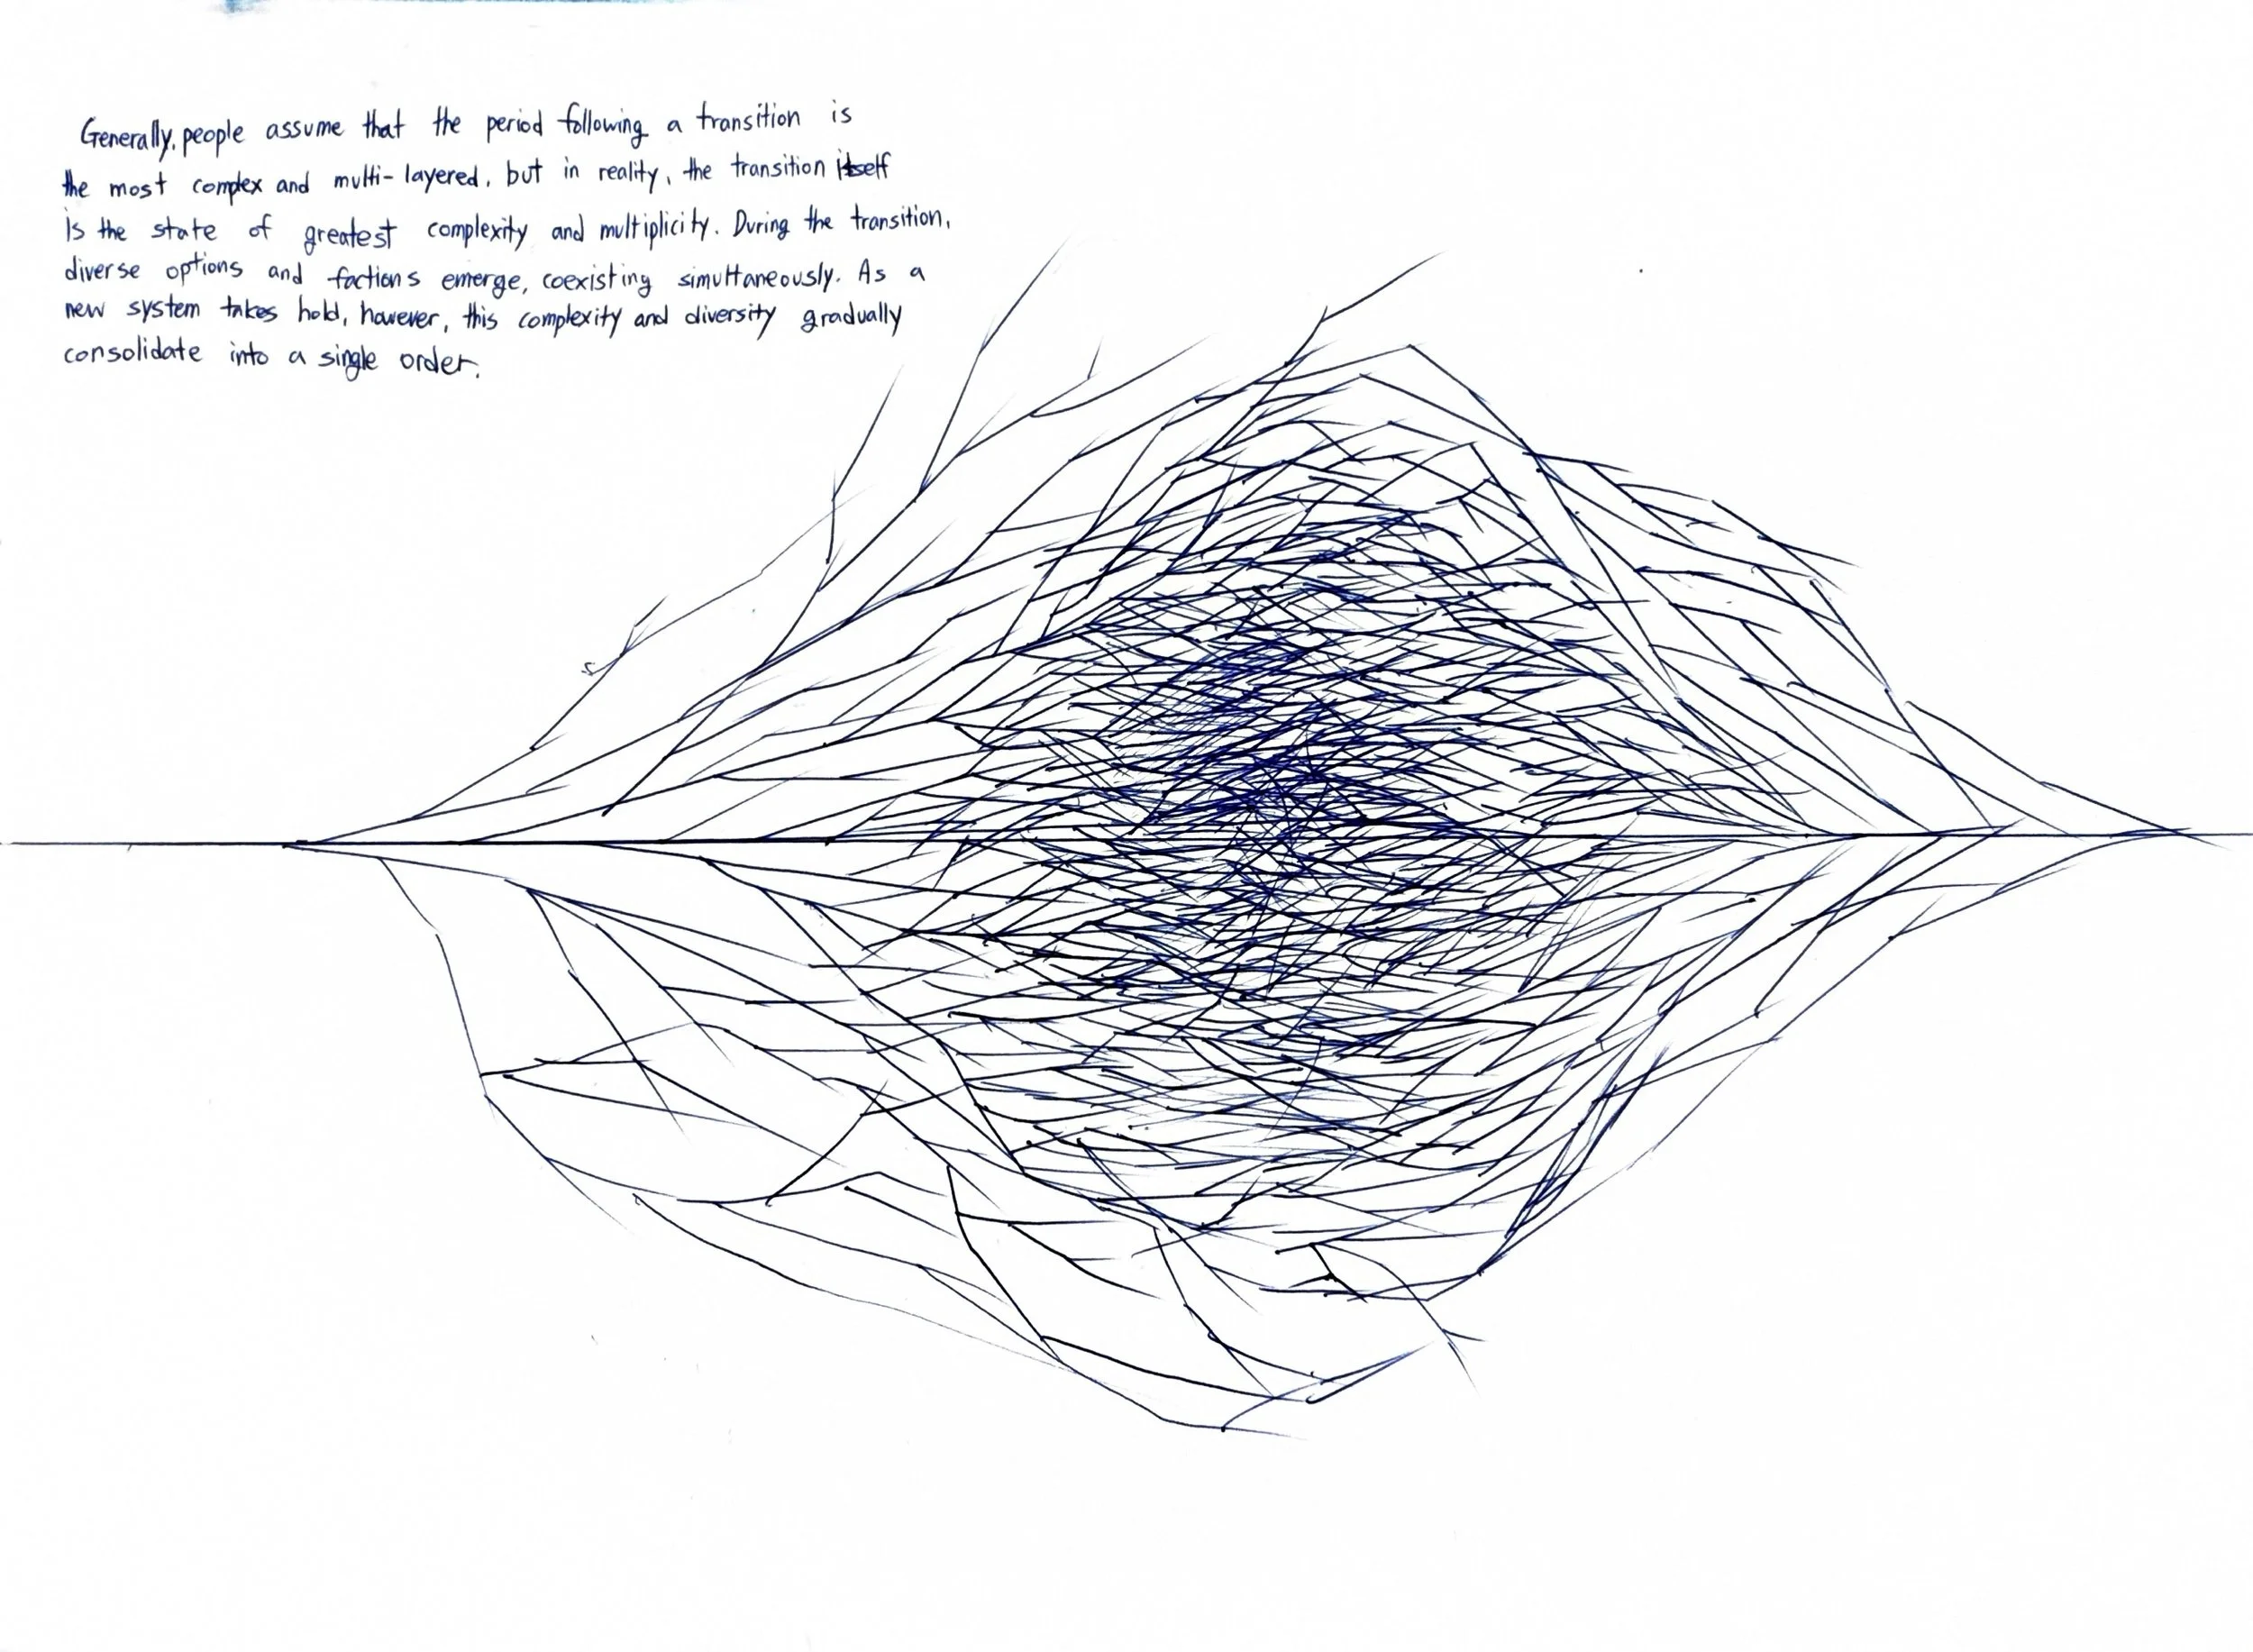 Generally, people assume that the period following a transition is
the most complex and multi-layered, but in reality, the transition itself
is the state of greatest complexity and multiplicity. During the transition,
diverse options and factions emerge, coexisting simultaneously. As a
new system takes hold, however, this complexity and diversity gradually
consolidate into a single order.